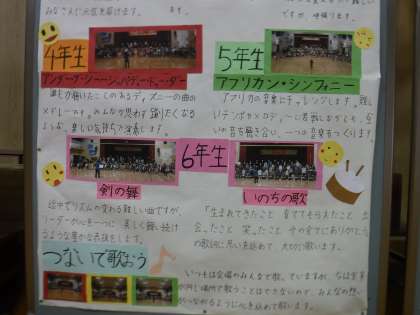 みなさんに元気を届けます。
ですが、頑張ります。
4年生
5年生
アンダー・ザ・シー～ジッパ・ディー・ドゥー・ダー
アフリカン・シンフォニー
誰もが聴いたことのあるディズニーの曲の
メドレーです。みんなが思わず踊りたくなる
ような、楽しい気持ちで演奏します。
アフリカの音楽にチャレンジします。難しい
テンポやメロディーに苦戦しながらも、互い
の音を聴き合い、一つの音楽をつくります
6年生
剣の舞
いのちの歌
途中でリズムの変わる難しい曲ですが、
リーダーが心を一つに、美しく舞い続け
るような豊かな表現をします。
「生まれてきたこと 育ててもらえたこと 出
会ったこと 笑ったこと その全てにありがとう」
の歌詞に思いを込めて、大切に歌います。
つないで歌おう
いつもは会場のみんなで歌っていますが、今は全員
が同じ場所で歌うことはできないので、みんなの想い
がつながるように心を込めて歌います。